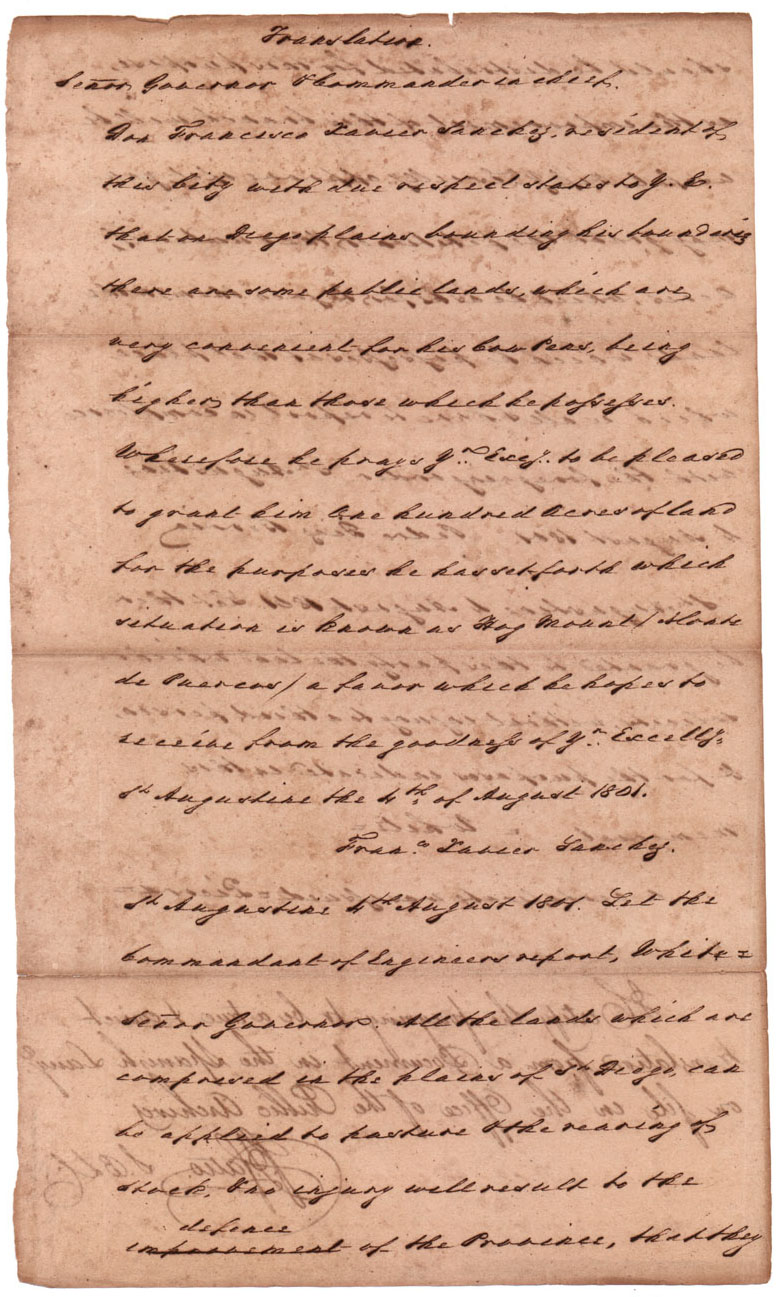 Translation.
Señor Governor & Commander in chief.
Don Francisco Xavier Sanchez, resident of
this City with due respect states to Y. E.
that on Diego plains bounding his boundaries
there are some public lands, which are,
very convenient for his Cow Pens, being
higher, than those which he possesses.
Wherefore he prays Yr. Excy. to be pleased
to grant him One hundred Acres of land
for the purposes he has set forth which
situation is known as Hog Mount / Monte
de Puercos / a favor which he hopes to
receive from the goodness of Yr. Excelly.
St. Augustine the 4th. of August 1801.
Franco. Xavier Sanchez.
St. Augustine 4th August 1801. Let the
Commandant of Engineers report, White=
Señor Governor. All the lands which are
composed in the plains of St. Diego, can
be applied to pasture & the rearing of
stock, & no injury will result to the
defence
improvement of the Province, that they